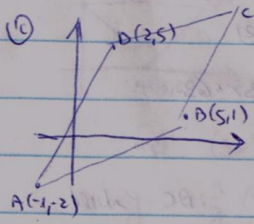 (c)
D(2,5)
C
B(5,1)
A(-1,-2)